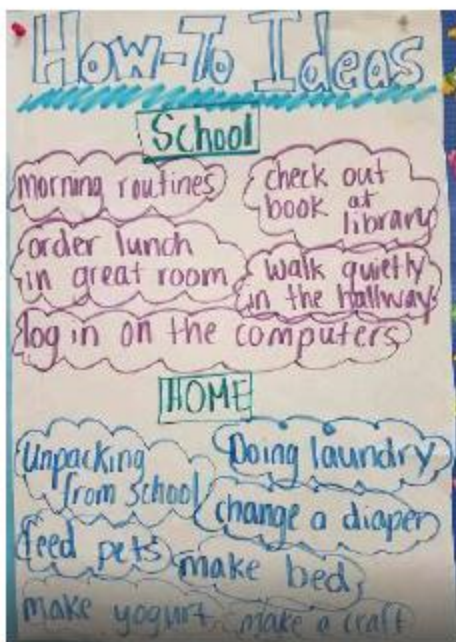 How-To Ideas
School
morning routines
check out
book at
library
order lunch
in great room
walk quietly
in the hallways
log in on the computers
HOME
Unpacking
from school
Doing laundry
change a diaper
feed pets
make bed
make yogurt
make a craft